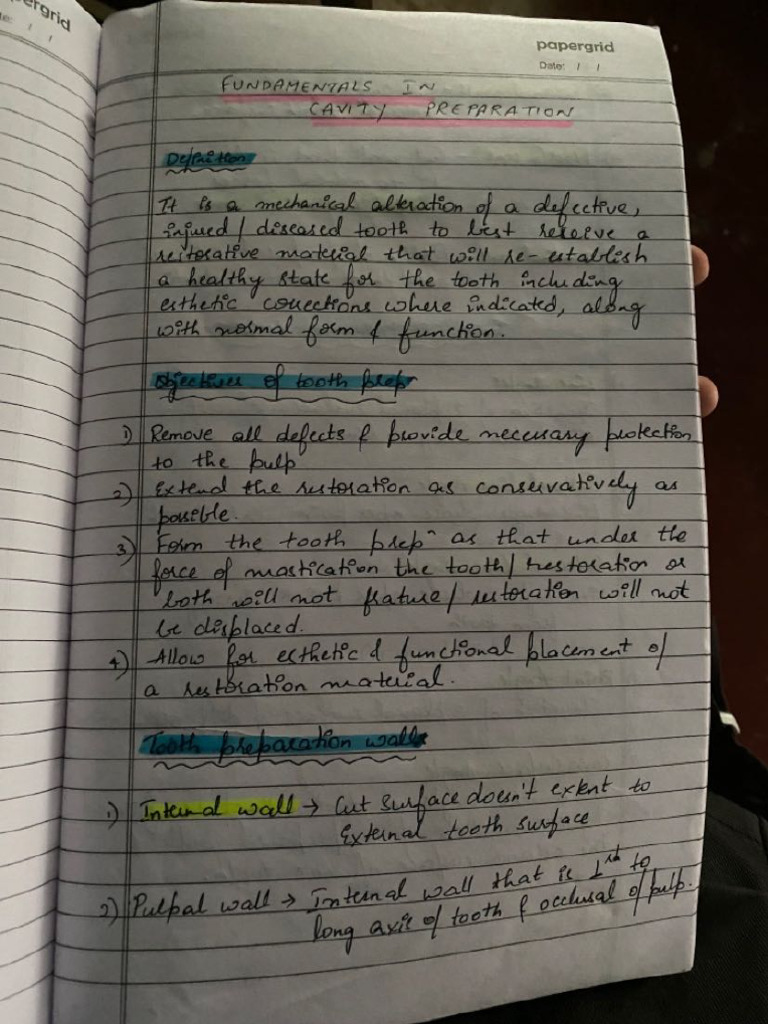 ergrid
papergrid
Date: / /
FUNDAMENTALS IN
CAVITY PREPARATION
Definition
It is a mechanical alteration of a defective,
injured / diseased tooth to best receive a
restorative material that will re-establish
a healthy state for the tooth including
esthetic corrections where indicated, along
with normal form & function.
Objectives of tooth prepn
1) Remove all defects & provide necessary protection
to the pulp
2) Extend the restoration as conservatively as
possible.
3) Form the tooth prepn as that under the
force of mastication the tooth/ restoration or
both will not frature/ restoration will not
be displaced.
4) Allow for esthetic & functional placement of
a restoration material.
Tooth preparation walls
1) Internal wall → Cut surface doesn't extent to
External tooth surface
2) Pulpal wall → Internal wall that is ⊥rd to
long axis of tooth & occlusal of pulp.